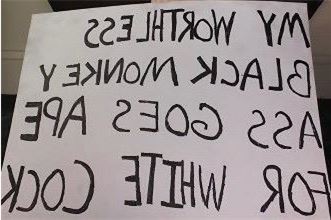 MY WORTHLESS
BLACK MONKEY
ASS GOES APE
FOR WHITE COCK